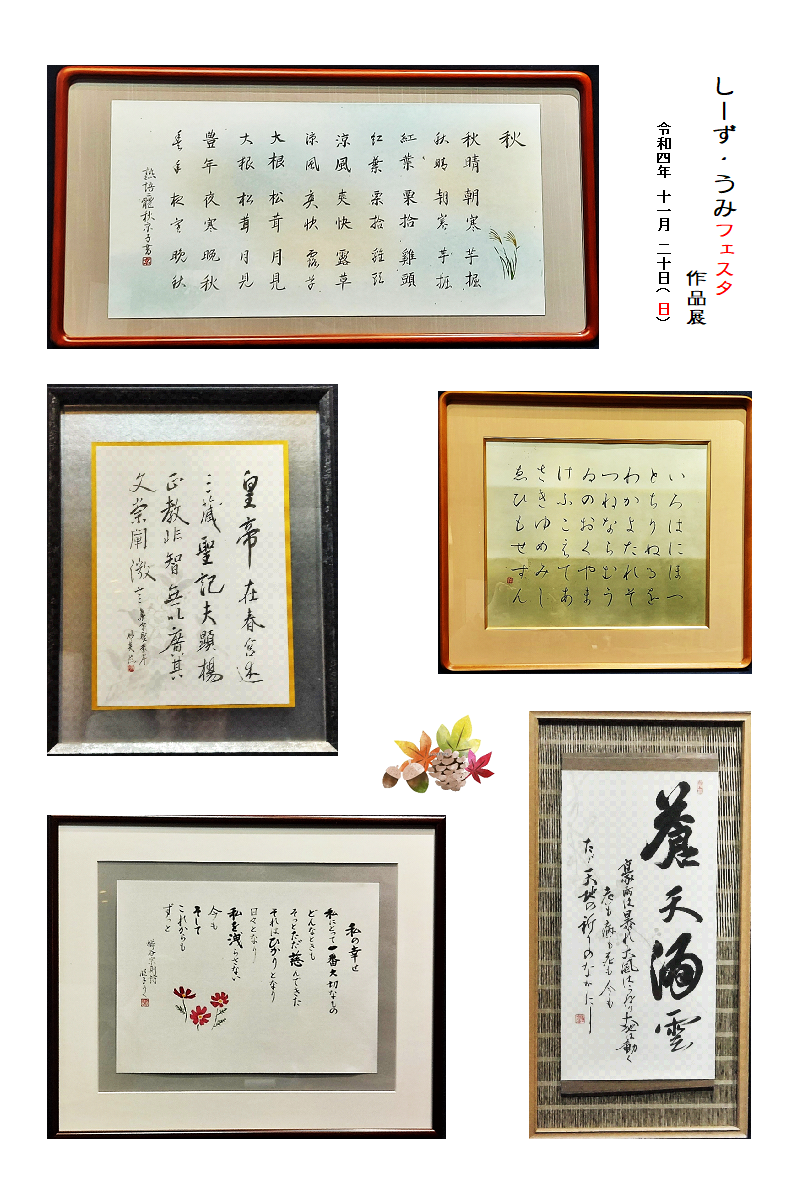 しーず・うみフェスタ
作品展
令和四年 十一月 二十日(日)
秋
秋晴 朝寒 芋掘
秋晴 朝寒 芋掘
紅葉 栗拾 雞頭
紅葉 栗拾 雞頭
涼風 爽快 露草
涼風 爽快 露草
大根 松茸 月見
大根 松茸 月見
豊年 夜寒 晩秋
豊年 夜寒 晩秋
皇帝在春宮述
三蔵聖記夫顯揚
正教非智無以廣其
文崇闡微言
いろはにほへ
とちりぬるを
わかよたれそ
つねならむう
ゐのおくやま
けふこえてあ
さきゆめみし
ゑひもせすん
私の幸せ
私にとって一番大切なもの
どんなときも
そっとただ慈んできた
それはひかりとなり
日々となり
私を洩らさない
今も
そして
これからも
ずっと
蒼天涌雲
豪雨は暴れ大風はつのり大地は動く
老も病も死も今も
ただ天地の祈りのなかに